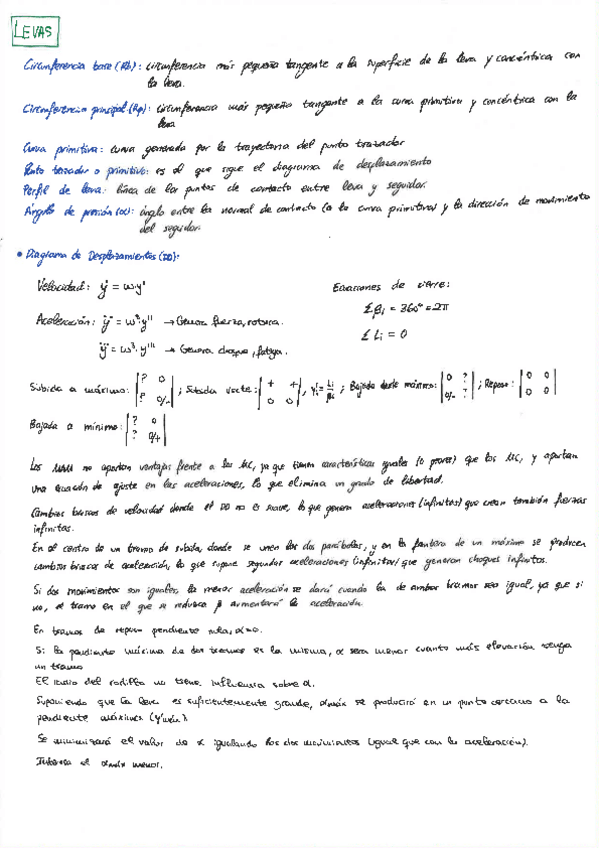 LEVAS
Circunferencia base (Rb): circunferencia más pequeña tangente a la superficie de la leva y concéntrica con
la leva.
Circunferencia principal (Rp): circunferencia más pequeña tangente a la curva primitiva y concéntrica con la
leva
Curva primitiva: curva generada por la trayectoria del punto trazador
Punto trazador o primitivo: es el que sigue el diagrama de desplazamiento
Perfil de leva: línea de los puntos de contacto entre leva y seguidor.
Ángulo de presión (α): ángulo entre la normal de contacto (a la curva primitiva) y la dirección de movimiento
del seguidor.
• Diagrama de Desplazamientos (DD):
Velocidad: ẏ = ω·y' Ecuaciones de cierre:
Σ βi = 360° = 2π
Aceleración: ÿ = ω²·y'' → Genera fuerza, rotura.
Σ Li = 0
y⃛ = ω³·y''' → Genera choque, fatiga.
Subida a máximo: | ? 0 ; Subida recta: | + + ; Bajada desde máximo: | 0 ? ; Reposo: | 0 0
Bajada a mínimo: | ? 0
Los no aportan ventajas frente a los MC, ya que tienen características iguales (o peores) que los MC, y aportan
una ecuación de ajuste en las aceleraciones, lo que elimina un grado de libertad.
Cambios bruscos de velocidad donde el DD no es suave, lo que genera aceleraciones (infinitas) que crean también fuerzas
infinitas.
En el centro de un tramo de subida, donde se unen las dos parábolas, y en la frontera de un máximo se producen
cambios bruscos de aceleración, lo que supone segundas aceleraciones (infinitas) que generan choques infinitos.
Si dos movimientos son iguales, la menor aceleración se dará cuando la de ambos tramos sea igual, ya que si
no, el tramo en el que se reduzca β aumentará la aceleración.
En tramos de reposo pendiente nula, α=0.
Si la pendiente máxima de dos tramos es la misma, α será menor cuanto más elevación tenga
un tramo
El radio del rodillo no tiene influencia sobre α.
Suponiendo que la leva es suficientemente grande, αmáx se producirá en un punto cercano a la
pendiente máxima (y'máx).
Se minimizará el valor de α igualando los dos movimientos (igual que con la aceleración).
Interesa el αmáx menor.